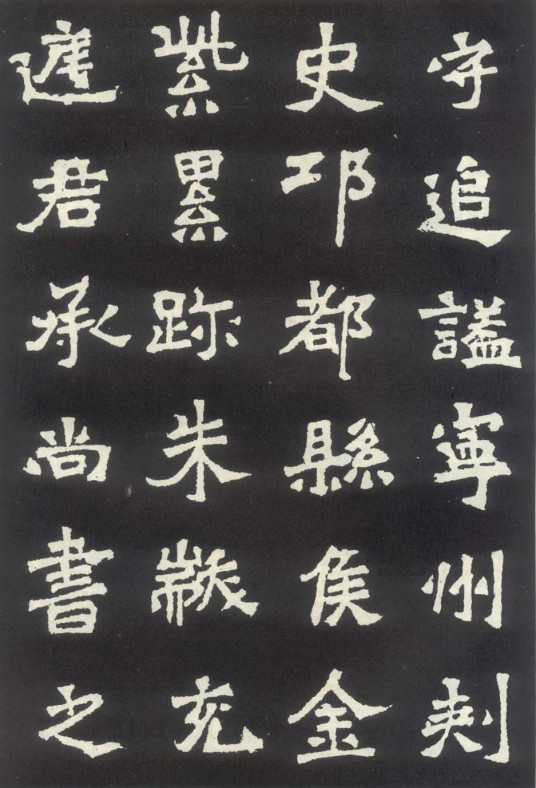 守追謚寧州刺
史邛都縣侯金
紫累跡朱黻充
庭君承尚書之